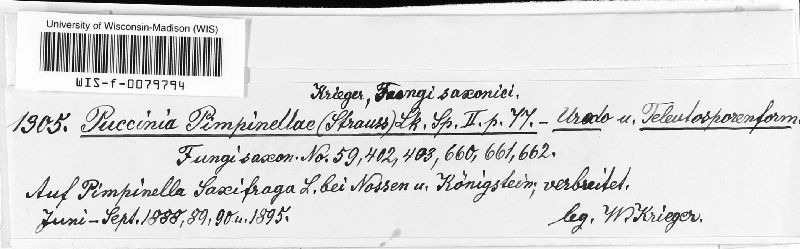 University of Wisconsin-Madison (WIS)
WIS-f-0079794
Krieger, Fungi saxonici.
1305. Puccinia Pimpinellae (Strauss) Lk. Sp. II. p. 77. – Uredo u. Teleutosporenform.
Fungi saxon. No. 59, 402, 403, 660, 661, 662.
Auf Pimpinella Saxifraga L. bei Nossen u. Königstein, verbreitet.
Juni – Sept. 1888, 89, 90 u. 1895.
leg. W. Krieger.